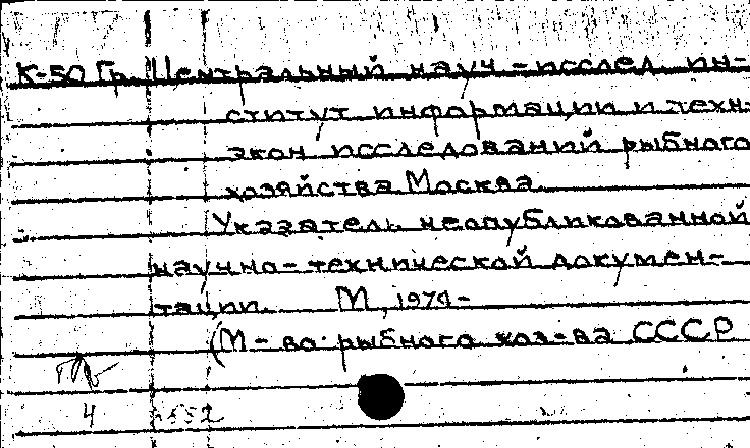 К-50 Гр. Центральный науч-исслед. ин-
ститут информации и техн-
экон исследований рыбного
хозяйства Москва.
Указатель неопубликованной
научно-технической докумен-
тации. М, 1974-
(М-во рыбного хоз-ва СССР
4